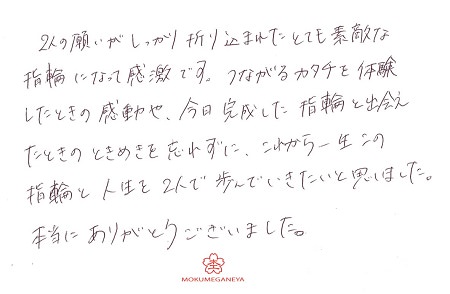 2人の願いがしっかり折り込まれたとても素敵な
指輪になって感激です。つながるカタチを体験
したときの感動や、今日完成した指輪と出会え
たときのときめきを忘れずに、これから一生この
指輪と人生を2人で歩んでいきたいと思いました。
本当にありがとうございました。
MOKUMEGANEYA